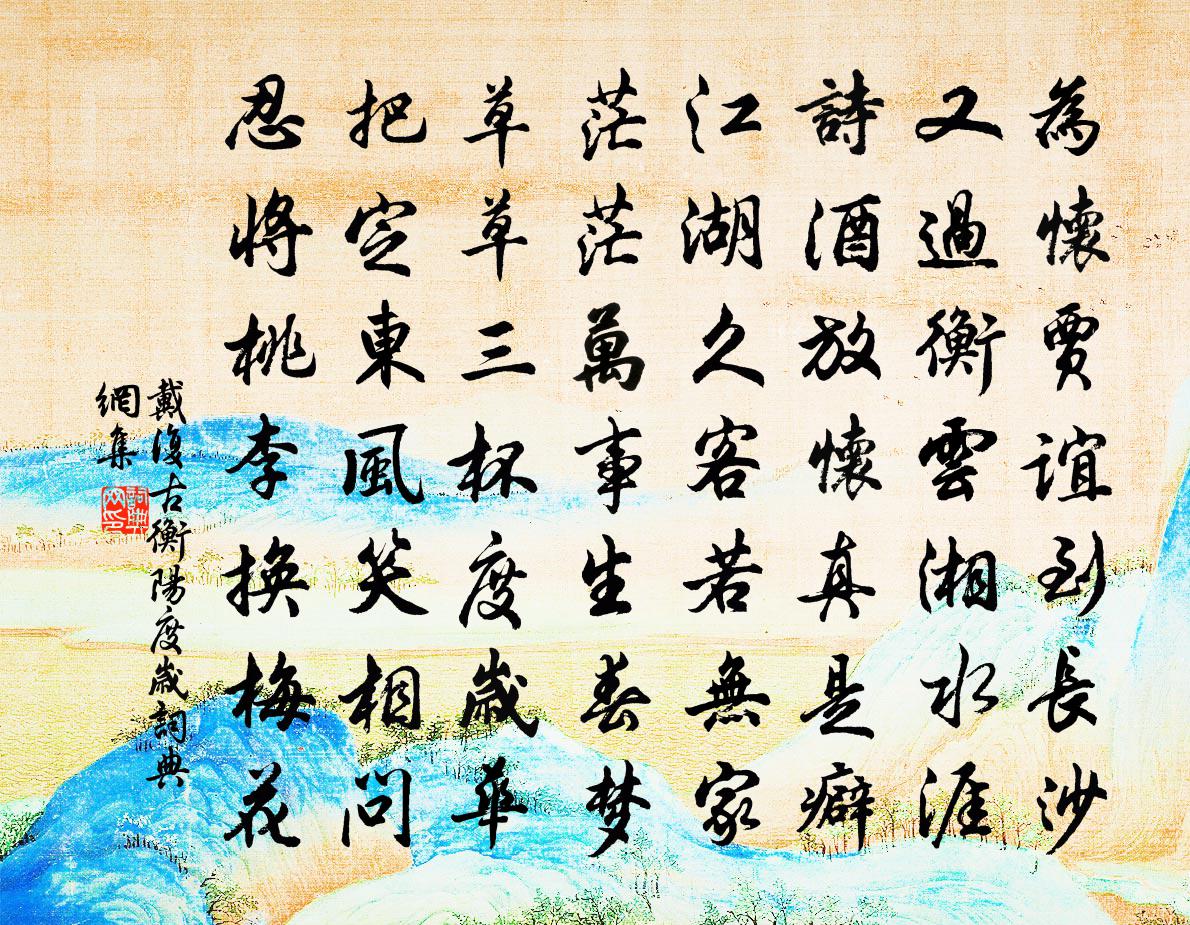 為懷賈誼到長沙
又過衡雲湘水涯
詩酒放懷真是癖
江湖久客若無家
茫茫萬事生春梦
草草三杯度歲華
把定東風笑相問
忍將桃李換梅花
戴復古衡陽度歲詞典
網集
詞典網印